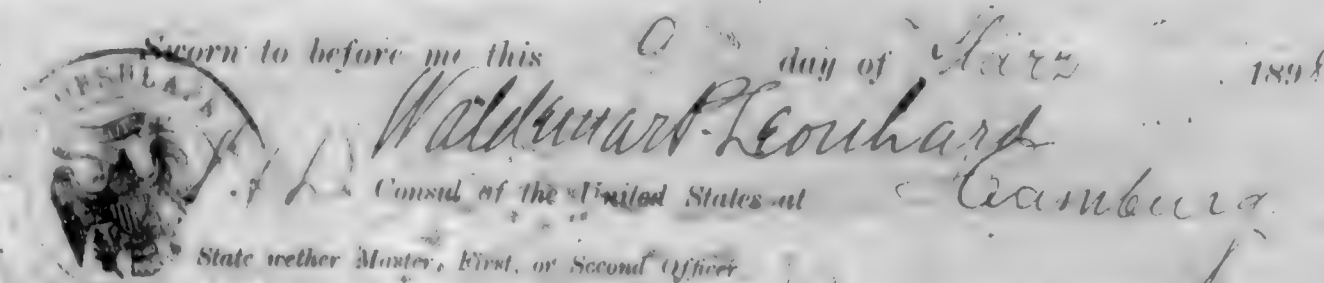 Sworn to before me this day of März 1898
Waldemar P. Leonhard
Consul of the United States at Hamburg
State wether Master, First, or Second Officer